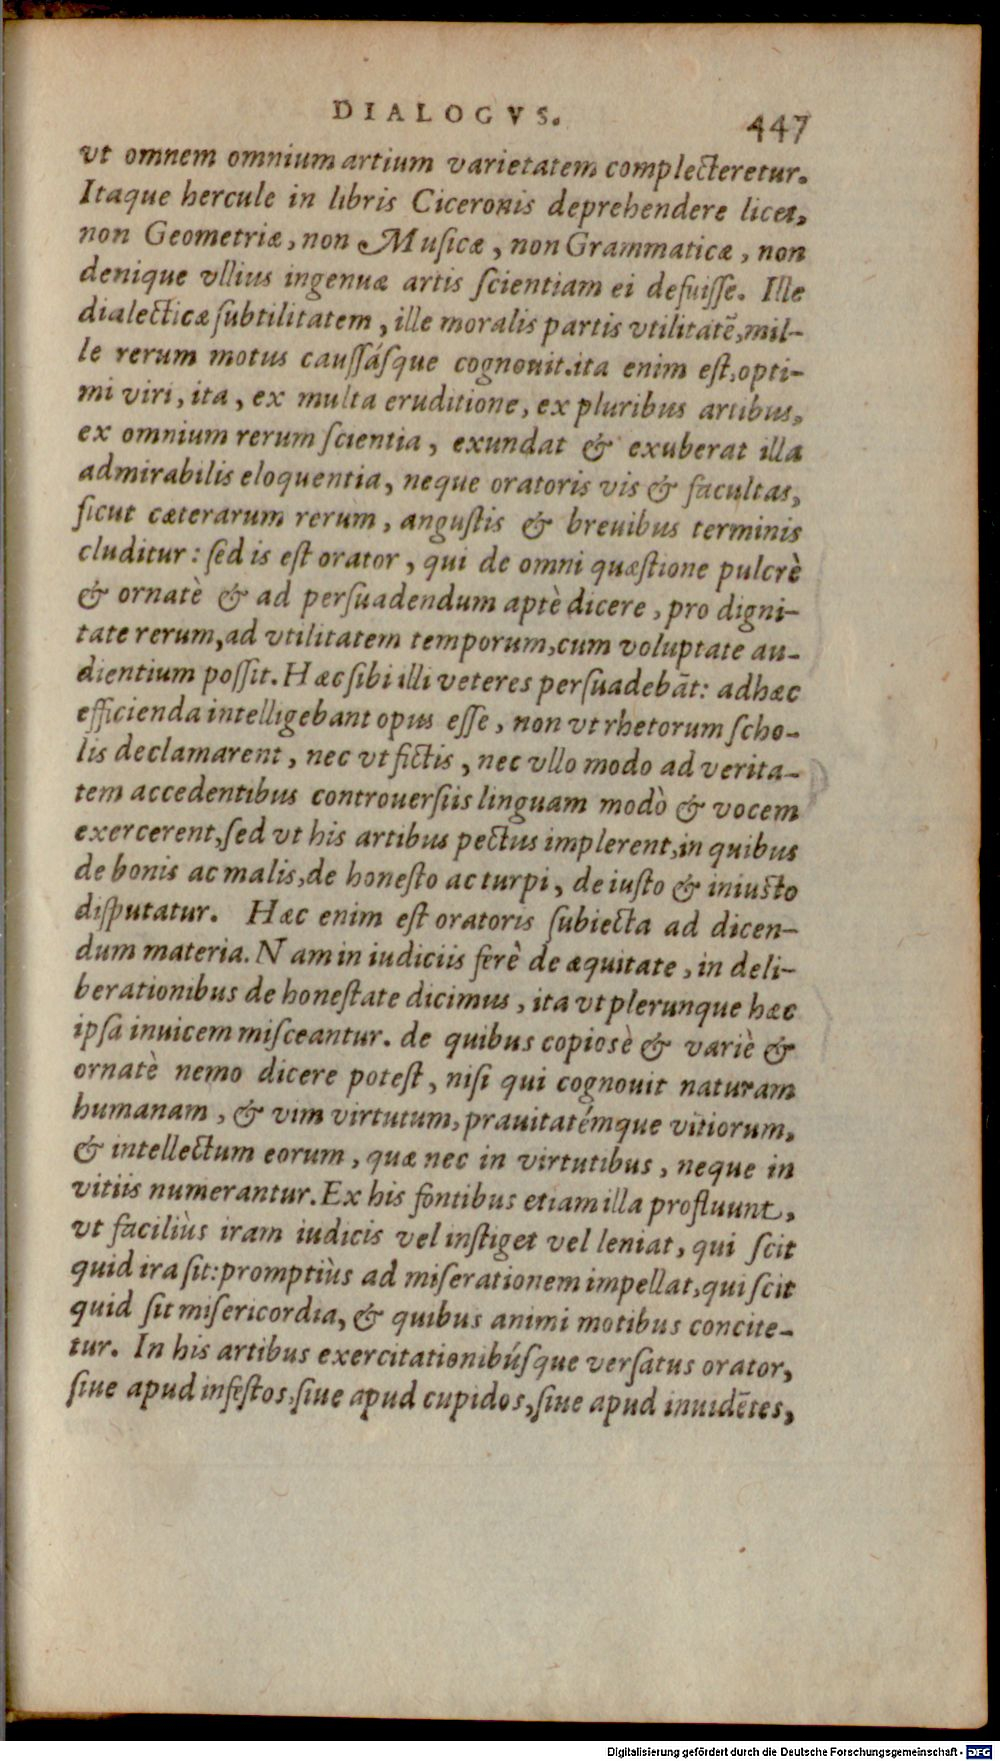 DIALOGVS. 447
vt omnem omnium artium varietatem complecteretur.
Itaque hercule in libris Ciceronis deprehendere licet,
non Geometriæ, non Musicæ, non Grammaticæ, non
denique vllius ingenuæ artis ſcientiam ei defuiſſe. Ille
dialecticæ ſubtilitatem, ille moralis partis vtilitatē, mil-
le rerum motus cauſſáſque cognouit. ita enim eſt, opti-
mi viri, ita, ex multa eruditione, ex pluribus artibus,
ex omnium rerum ſcientia, exundat & exuberat illa
admirabilis eloquentia, neque oratoris vis & facultas,
ſicut cæterarum rerum, anguſtis & breuibus terminis
cluditur: ſed is eſt orator, qui de omni quæſtione pulcrè
& ornatè & ad perſuadendum aptè dicere, pro digni-
tate rerum, ad vtilitatem temporum, cum voluptate au-
dientium poſſit. Hæc ſibi illi veteres perſuadebāt: ad hæc
efficienda intelligebant opus eſſe, non vt rhetorum ſcho-
lis declamarent, nec vt fictis, nec vllo modo ad verita-
tem accedentibus controuerſiis linguam modò & vocem
exercerent, ſed vt his artibus pectus implerent, in quibus
de bonis ac malis, de honeſto ac turpi, de iuſto & iniuſto
diſputatur. Hæc enim eſt oratoris ſubiecta ad dicen-
dum materia. Nam in iudiciis ferè de æquitate, in deli-
berationibus de honeſtate dicimus, ita vt plerunque hæc
ipſa inuicem miſceantur. de quibus copiosè & variè &
ornatè nemo dicere poteſt, niſi qui cognouit naturam
humanam, & vim virtutum, prauitatémque vitiorum,
& intellectum eorum, quæ nec in virtutibus, neque in
vitiis numerantur. Ex his fontibus etiam illa profluunt,
vt faciliùs iram iudicis vel inſtiget vel leniat, qui ſcit
quid ira ſit: promptiùs ad miſerationem impellat, qui ſcit
quid ſit miſericordia, & quibus animi motibus concite-
tur. In his artibus exercitationibúſque verſatus orator,
ſiue apud infeſtos, ſiue apud cupidos, ſiue apud inuidētes,
Digitalisierung gefördert durch die Deutsche Forschungsgemeinschaft - DFG